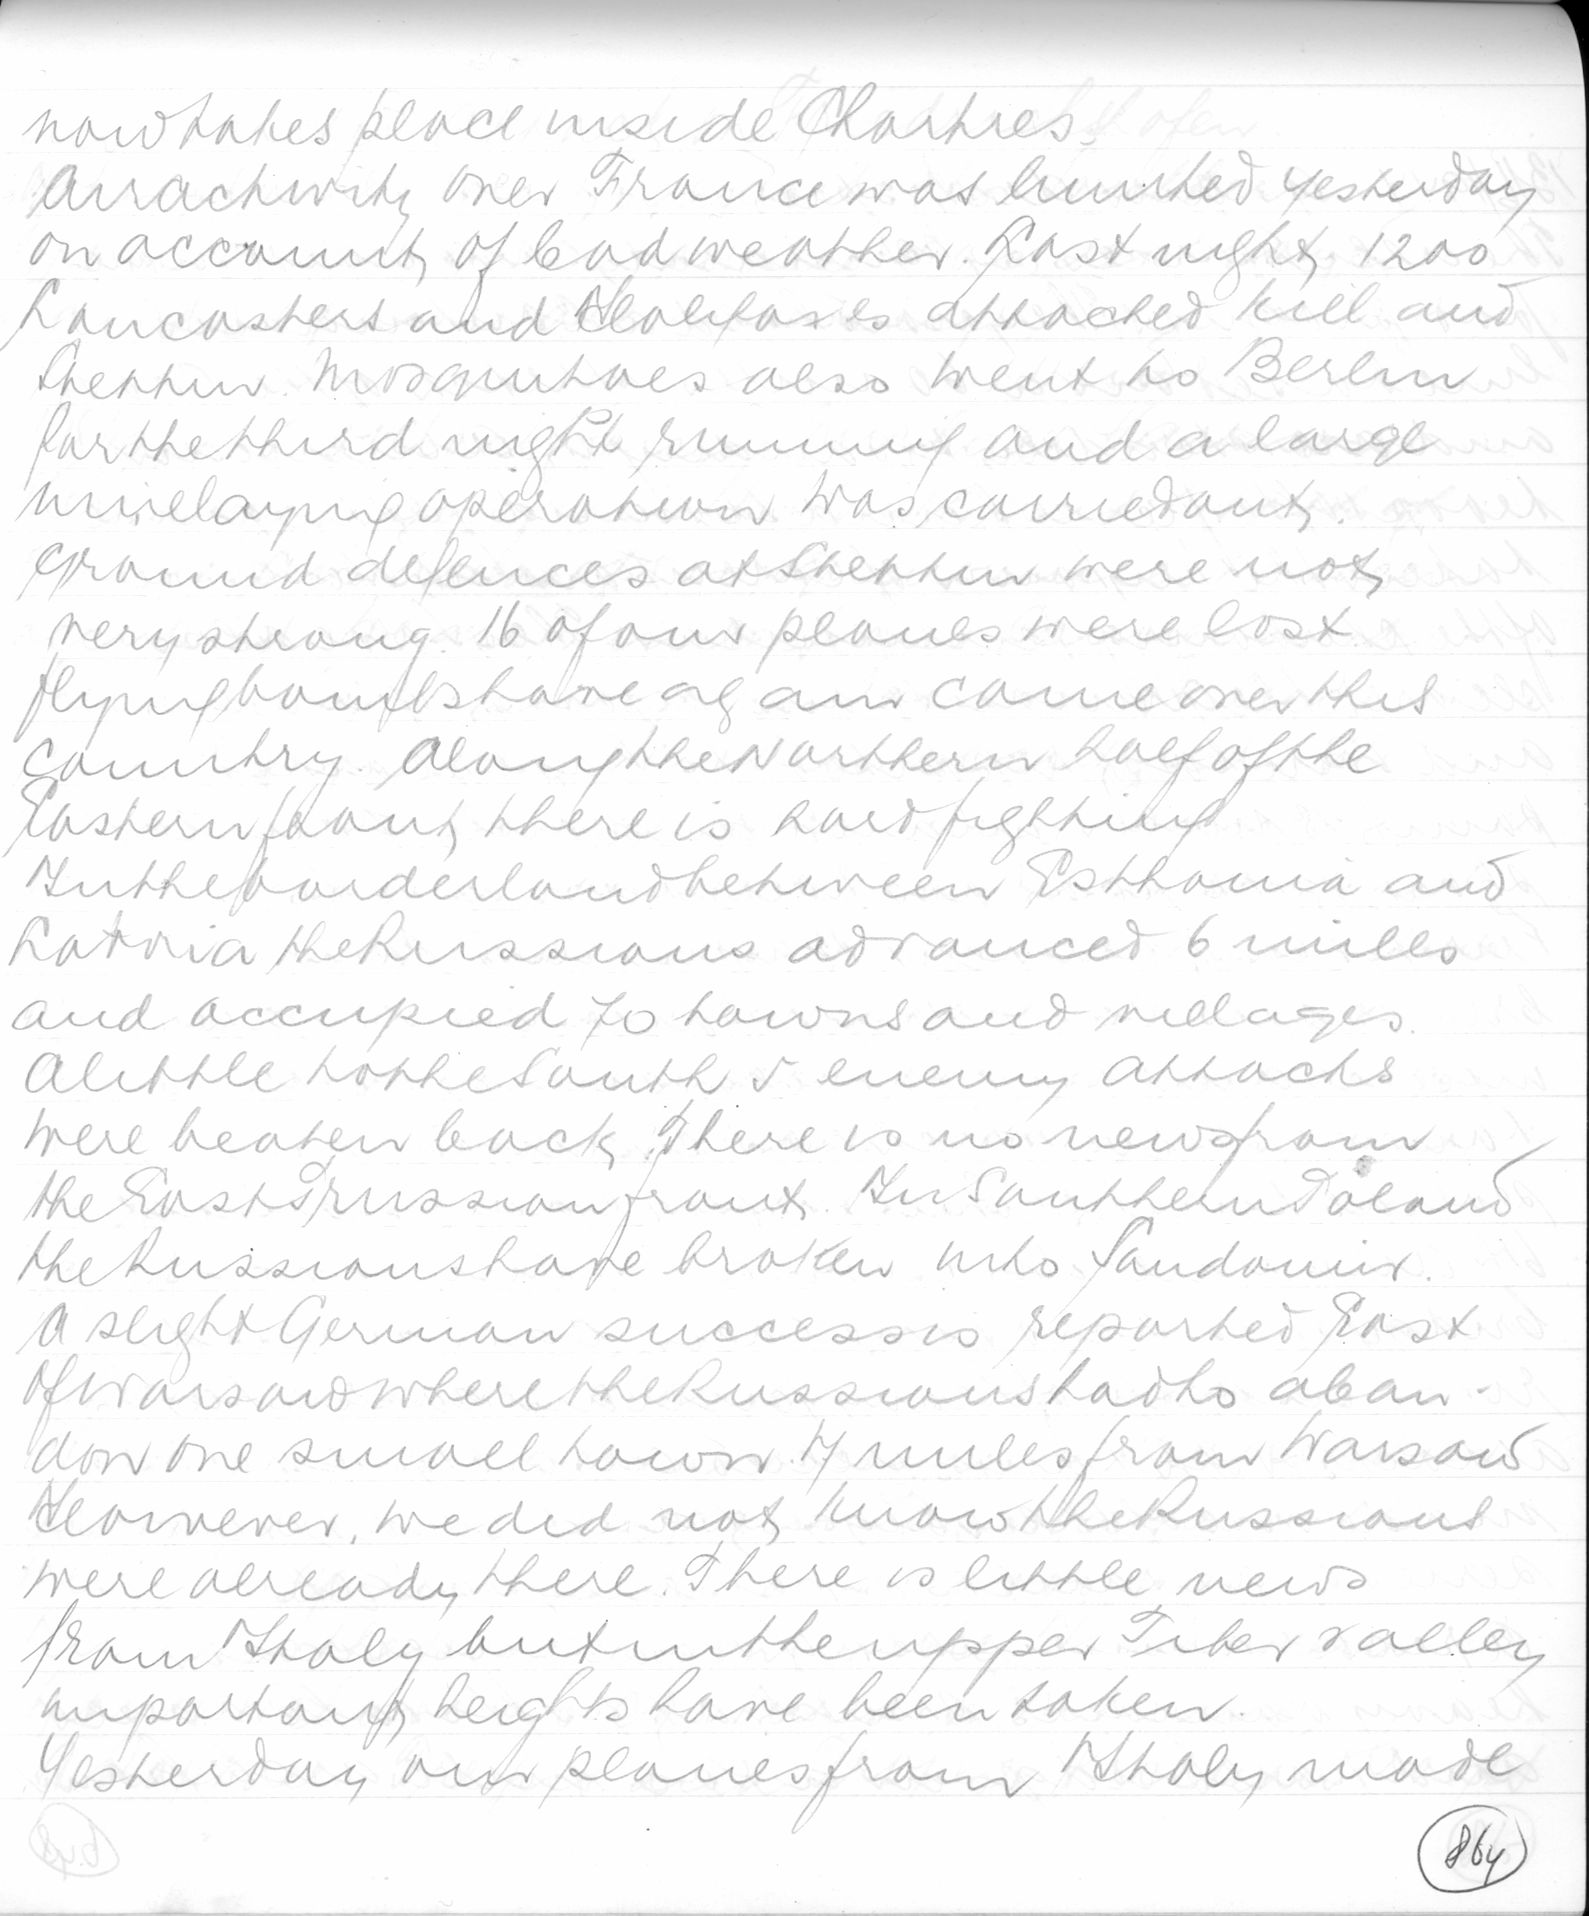 now takes place inside Chartres.
Airactivity over France was limited yesterday
on account of bad weather. Last night 1200
Lancasters and Halifaxes attacked Kiel and
Stettin. Mosquitoes also went to Berlin
for the third night running and a large
minelaying operation was carried out.
Ground defences at Stettin were not
very strong. 16 of our planes were lost.
flying bombs have again come over this
country. Along the Northern half of the
Eastern front there is hard fighting
In the borderland between Esthonia and
Latvia the Russians advanced 6 miles
and occupied 70 towns and villages.
A little to the South 5 enemy attacks
were beaten back. There is no news from
the East Prussian front. In Southern Poland
the Russians have broken into Sandomir.
A slight German success is reported East
of Warsaw where the Russians had to aban-
don one small town 7 miles from Warsaw
However, we did not know the Russians
were already there. There is little news
from Italy but in the upper Tiber valley
important heights have been taken.
Yesterday our planes from Italy made